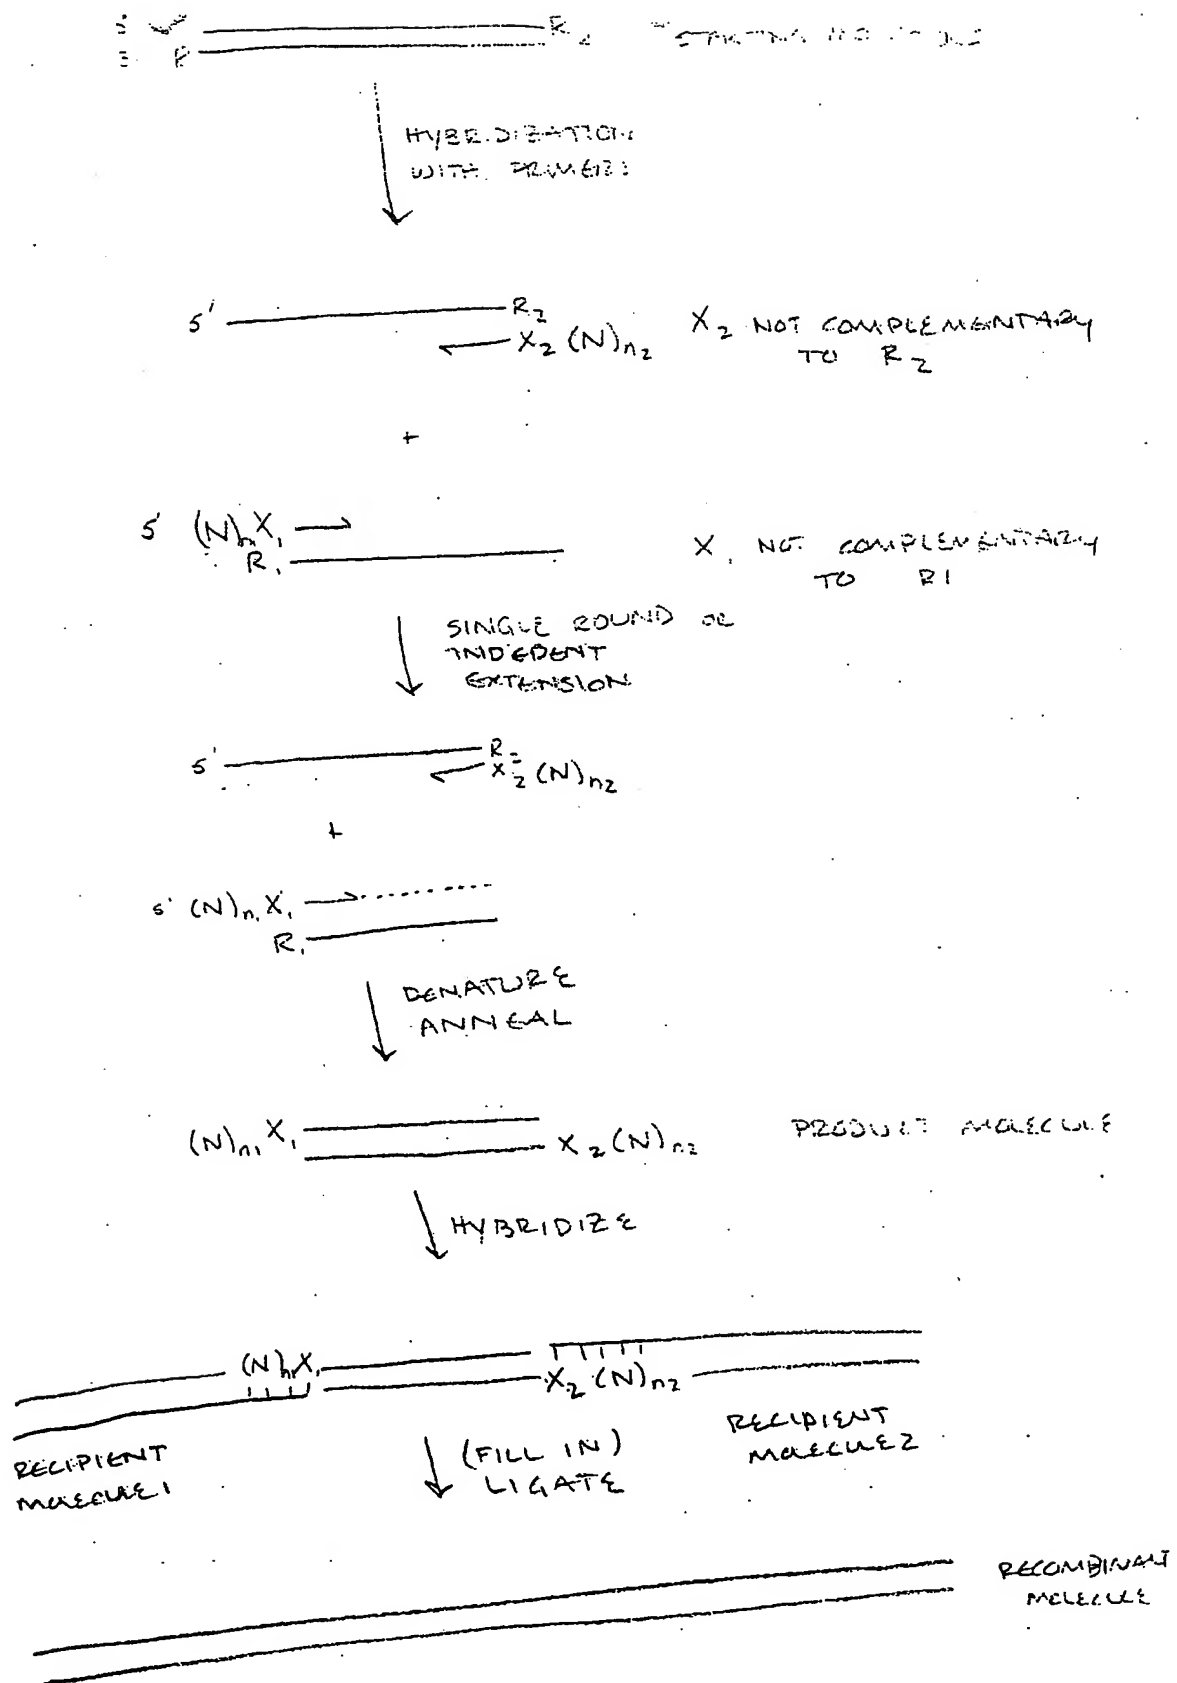 R2 STARTING
3' R
HYBRIDIZATION
WITH PRIMERS
5' R2
X2 (N)n2
X2 NOT COMPLEMENTARY
TO R2
+
5' (N)n X1
R1
X1 NOT COMPLEMENTARY
TO R1
SINGLE ROUND OR
INDEDENT
EXTENSION
5' R2
X2 (N)n2
+
5' (N)n1 X1
R1
DENATURE
ANNEAL
(N)n1 X1
X2 (N)n2
PRODUCT MOLECULE
HYBRIDIZE
(N)n X1
X2 (N)n2
RECIPIENT
MOLECULE 1
(FILL IN)
LIGATE
RECIPIENT
MOLECULE 2
RECOMBINANT
MOLECULE